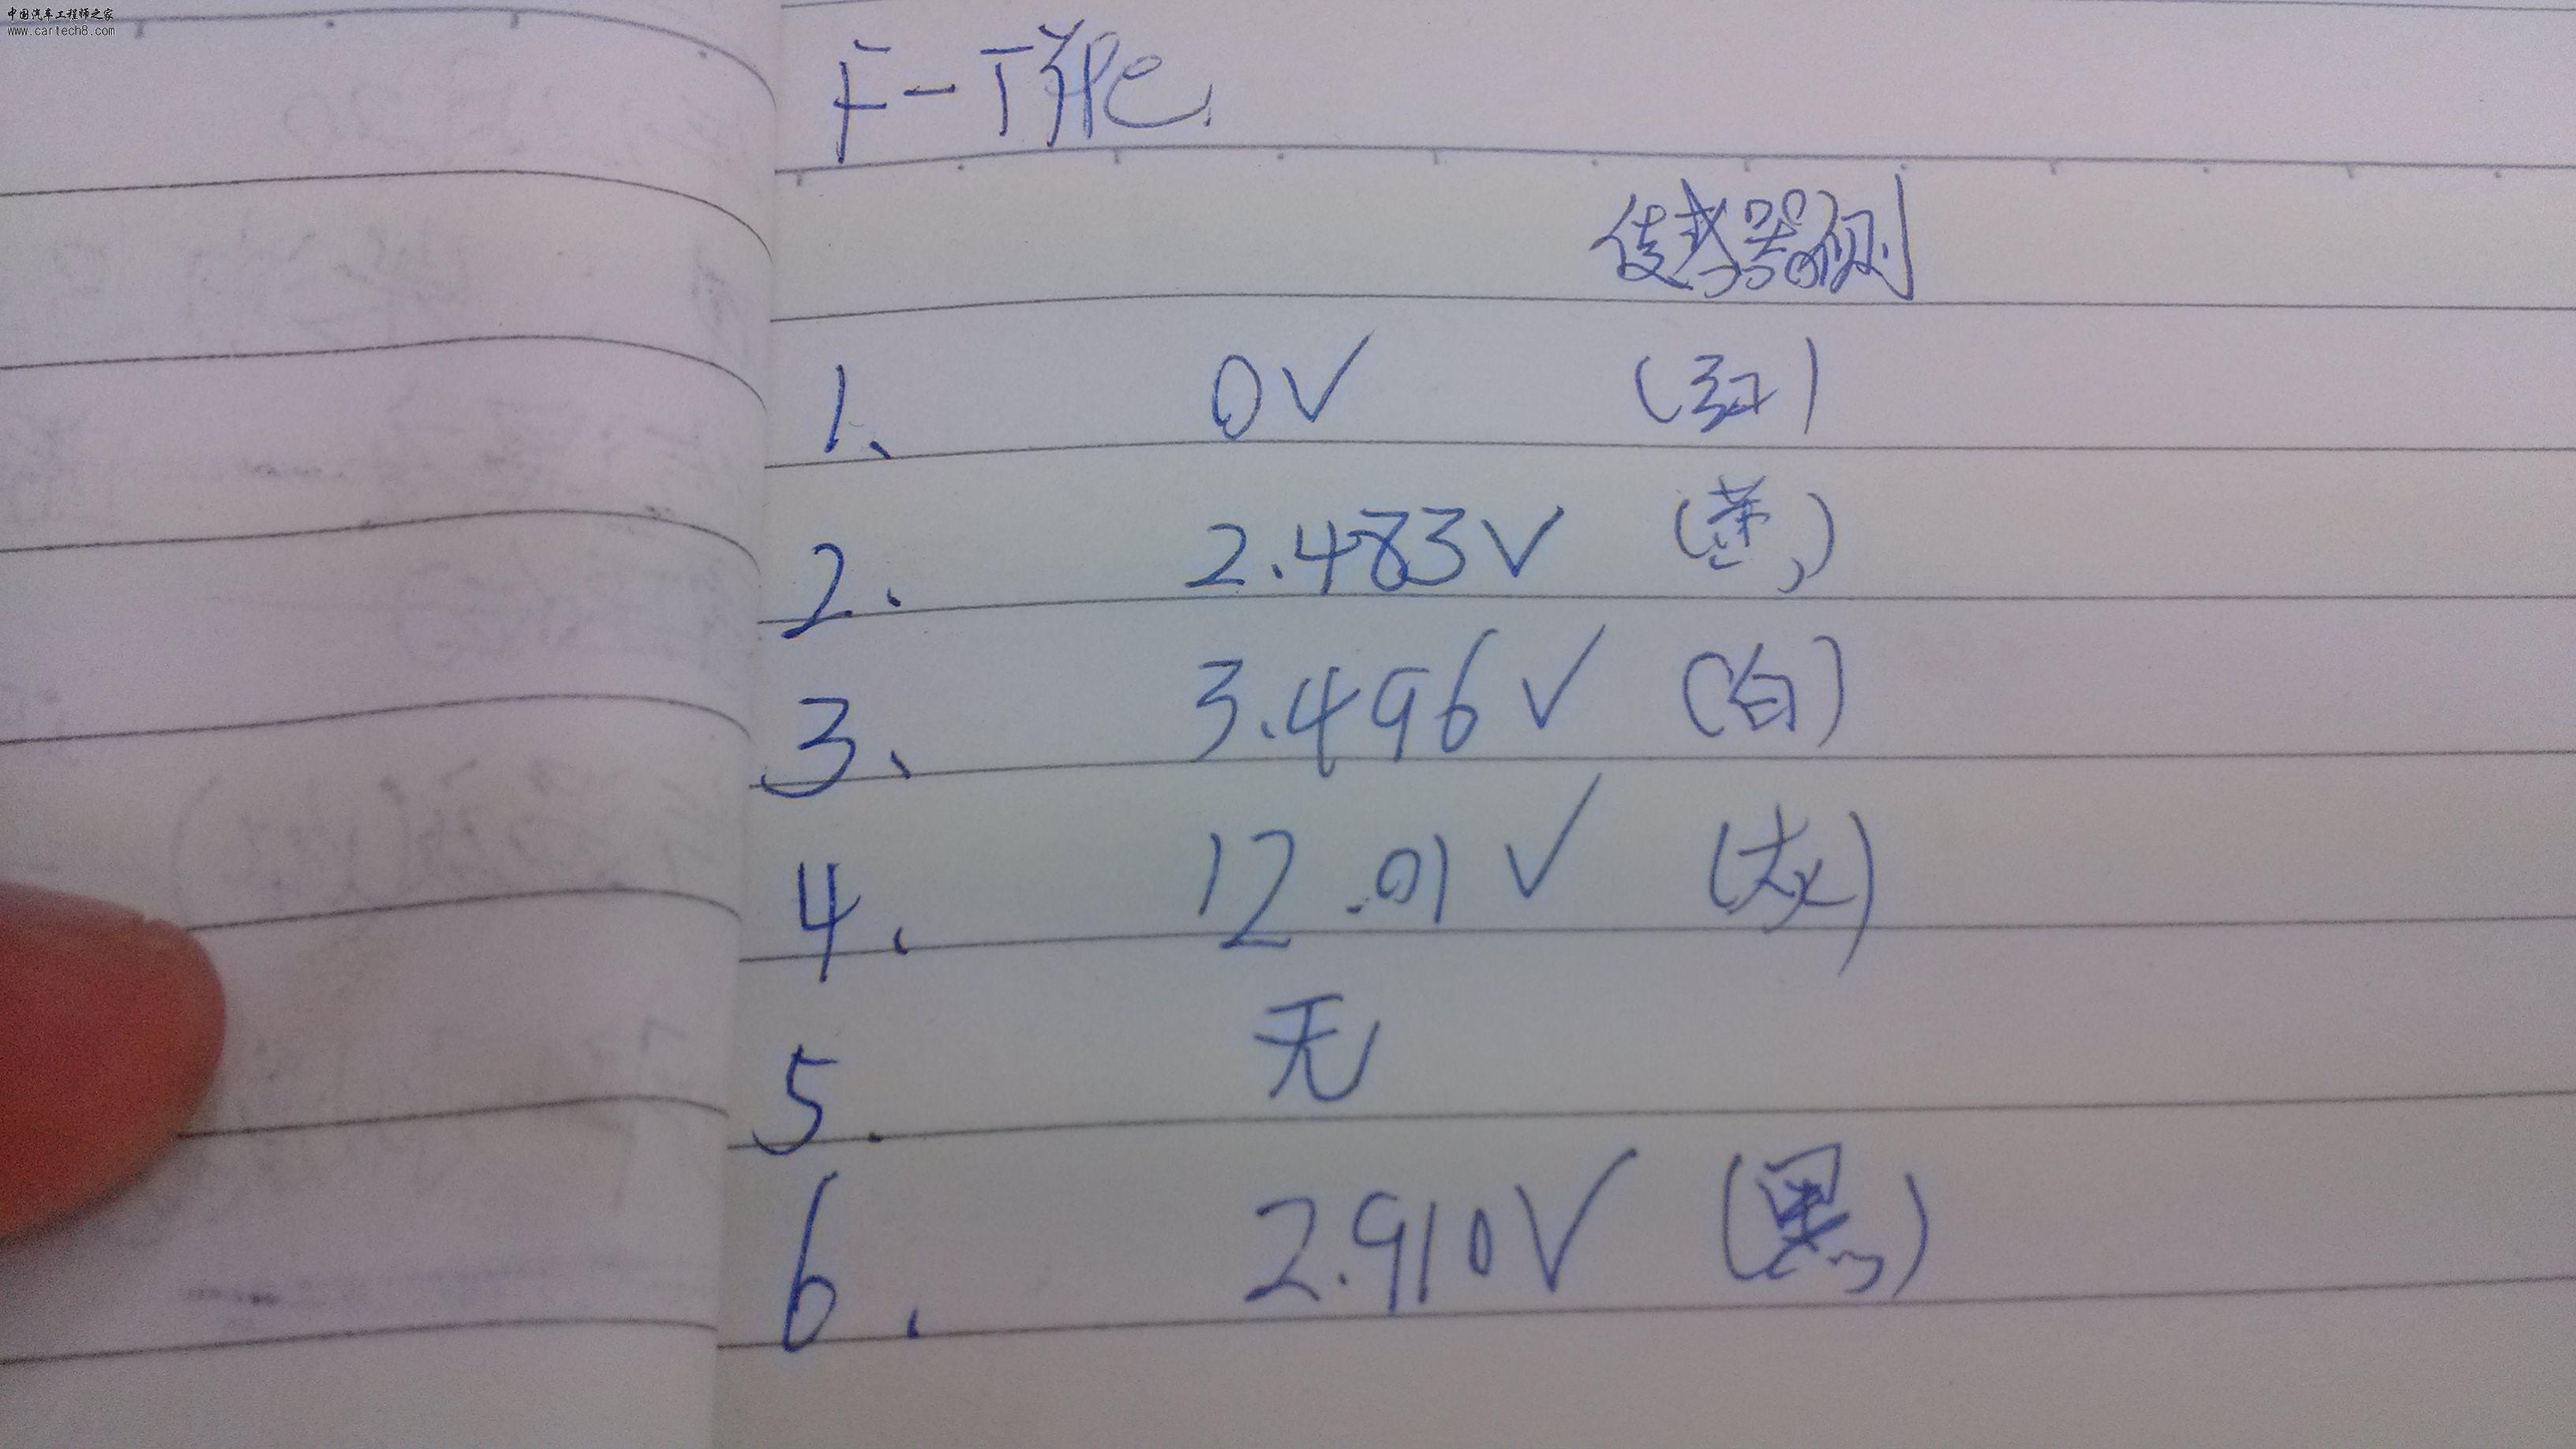 中国汽车工程师之家
www.cartech8.com
F-TYPe.
传感器侧
1、 0V (红)
2. 2.483V (黄)
3、 3.496V (白)
4. 12.01V (灰)
5. 无
6. 2.910V (黑)